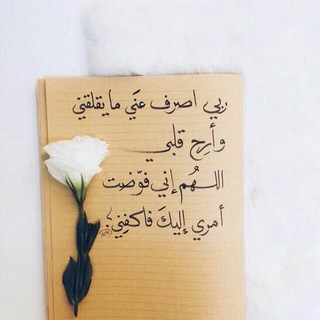 ربي اصرف عني ما يقلقني
وأرح قلبي
اللهم إني فوّضت
أمري إليكَ فاكفِني.